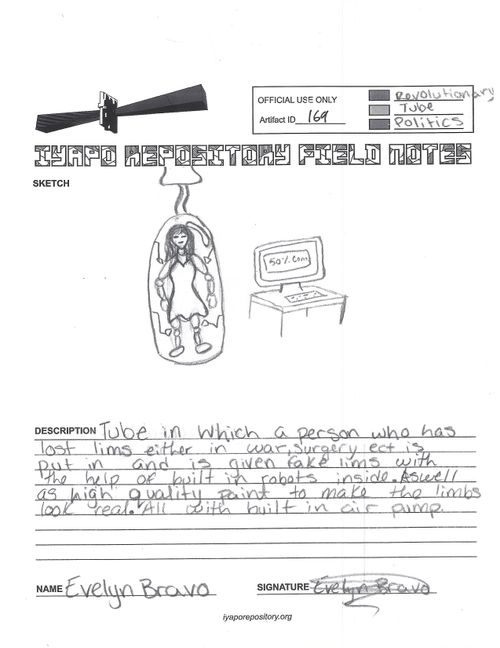 OFFICIAL USE ONLY
Artifact ID 169
Revolutionary
Tube
Politics
IYAPO REPOSITORY FIELD NOTES
SKETCH
50% Com
DESCRIPTION Tube in which a person who has
lost lims either in war, surgery ect is
put in and is given fake lims with
the help of built in robots inside. Aswell
as high quality paint to make the limbs
look real. All with built in air pump.
NAME Evelyn Bravo
SIGNATURE Evelyn Bravo
iyaporepository.org